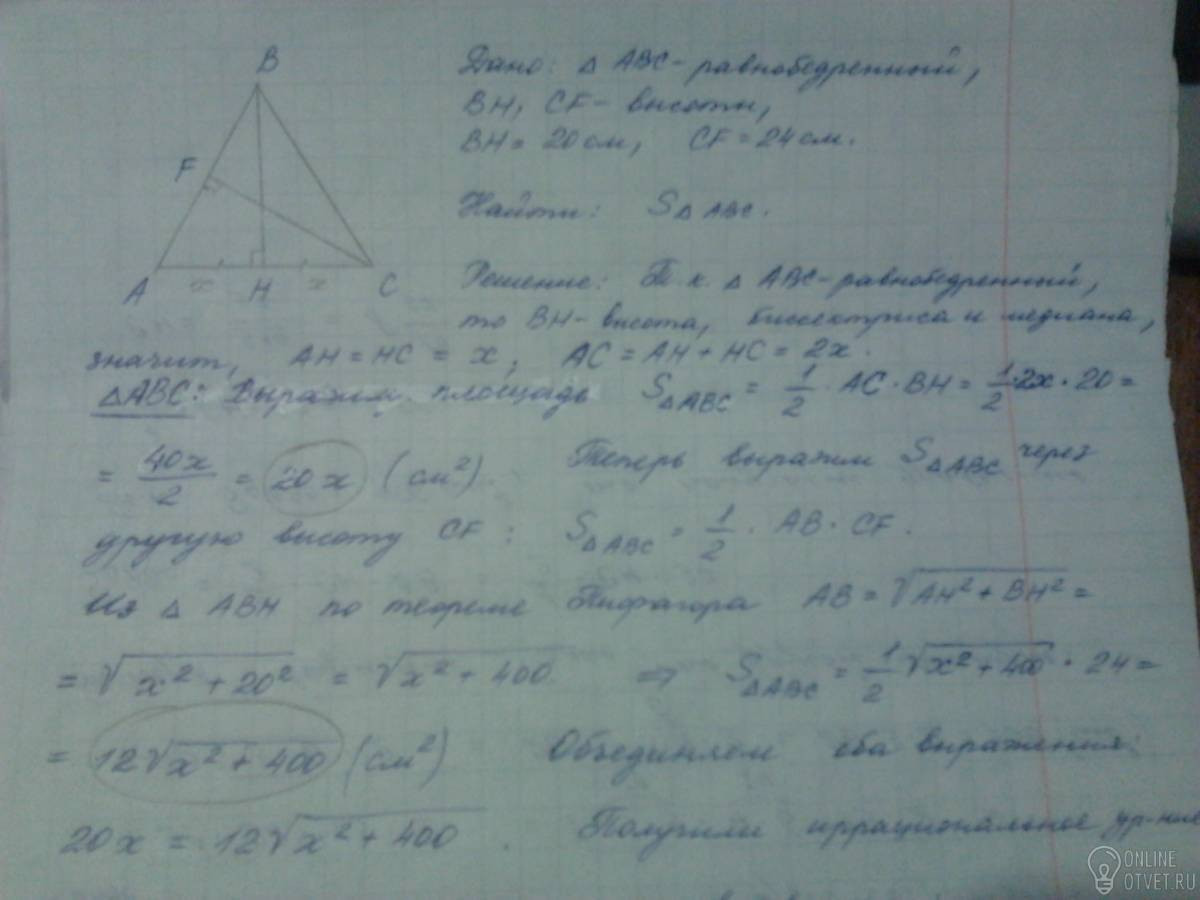 B
F
A x H x C
Дано: △ ABC - равнобедренный,
BH, CF - высоты,
BH = 20 см, CF = 24 см.
Найти: S△ABC.
Решение: Т. к. △ ABC - равнобедренный,
то BH - высота, биссектриса и медиана,
значит, AH = HC = x, AC = AH + HC = 2x.
△ABC: Выразим площадь S△ABC = 1/2 · AC · BH = 1/2 · 2x · 20 =
= 40x/2 = 20x (см²). Теперь выразим S△ABC через
другую высоту CF: S△ABC = 1/2 · AB · CF.
Из △ ABH по теореме Пифагора AB = √(AH² + BH²) =
= √(x² + 20²) = √(x² + 400) ⇒ S△ABC = 1/2 √(x² + 400) · 24 =
= 12√(x² + 400) (см²) Объединяем оба выражения:
20x = 12√(x² + 400). Получили иррациональное ур-ние
ONLINE
OTVET.RU